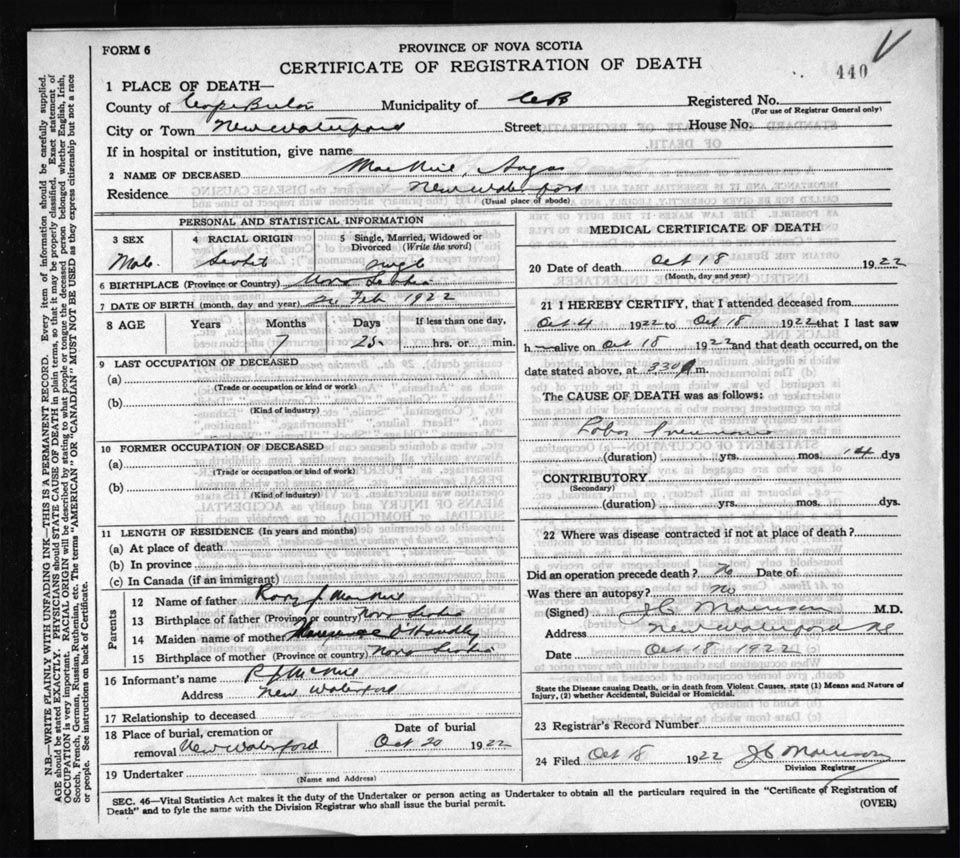 FORM 6
PROVINCE OF NOVA SCOTIA
CERTIFICATE OF REGISTRATION OF DEATH
440
1 PLACE OF DEATH—
County of Cape Breton Municipality of C B Registered No.
(For use of Registrar General only)
City or Town New Waterford Street House No.
If in hospital or institution, give name
2 NAME OF DECEASED MacNeil, Angus
Residence New Waterford
(Usual place of abode)
PERSONAL AND STATISTICAL INFORMATION
3 SEX 4 RACIAL ORIGIN 5 Single, Married, Widowed or Divorced (Write the word)
Male Scotch Single
6 BIRTHPLACE (Province or Country) Nova Scotia
7 DATE OF BIRTH (month, day and year) Feb 1922
8 AGE Years Months Days If less than one day,
7 25 hrs. or min.
9 LAST OCCUPATION OF DECEASED
(a)
(Trade or occupation or kind or work)
(b)
(Kind of industry)
10 FORMER OCCUPATION OF DECEASED
(a)
(Trade or occupation or kind of work)
(b)
(Kind of industry)
11 LENGTH OF RESIDENCE (In years and months)
(a) At place of death
(b) In province
(c) In Canada (if an immigrant)
Parents
12 Name of father Rory J MacNeil
13 Birthplace of father (Province or country) Nova Scotia
14 Maiden name of mother O'Handley
15 Birthplace of mother (Province or country) Nova Scotia
16 Informant's name R J McNeil
Address New Waterford
17 Relationship to deceased
18 Place of burial, cremation or Date of burial
removal New Waterford Oct 20 1922
19 Undertaker
(Name and Address)
MEDICAL CERTIFICATE OF DEATH
20 Date of death Oct 18 1922
(Month, day and year)
21 I HEREBY CERTIFY, that I attended deceased from
Oct 4 1922 to Oct 18 1922 that I last saw
h alive on Oct 18 1922 and that death occurred, on the
date stated above, at 3.30 m.
The CAUSE OF DEATH was as follows:
Lobar Pneumonia
(duration) yrs. mos. 14 dys
CONTRIBUTORY
(Secondary)
(duration) yrs. mos. dys.
22 Where was disease contracted if not at place of death?
Did an operation precede death? No Date of
Was there an autopsy? No
(Signed) J C Morrison M.D.
Address New Waterford NS
Date Oct 18 1922
State the Disease causing Death, or in death from Violent Causes, state (1) Means and Nature of Injury, (2) whether Accidental, Suicidal or Homicidal.
23 Registrar's Record Number
24 Filed Oct 18 1922 J C Morrison
Division Registrar
SEC. 46—Vital Statistics Act makes it the duty of the Undertaker or person acting as Undertaker to obtain all the particulars required in the "Certificate of Registration of
Death" and to fyle the same with the Division Registrar who shall issue the burial permit.
(OVER)
N.B.—WRITE PLAINLY WITH UNFADING INK—THIS IS A PERMANENT RECORD. Every item of information should be carefully supplied.
AGE should be stated EXACTLY. PHYSICIANS should STATE CAUSE OF DEATH in plain terms, so that it may be properly classified. Exact statement of
OCCUPATION is very important. RACIAL ORIGIN will be described by stating to what people or tongue the deceased person belonged whether English, Irish,
Scotch, French, German, Russian, Ruthenian, etc. The terms "AMERICAN" OR "CANADIAN" MUST NOT BE USED as they express citizenship but not a race
or people. See instructions on back of Certificate.